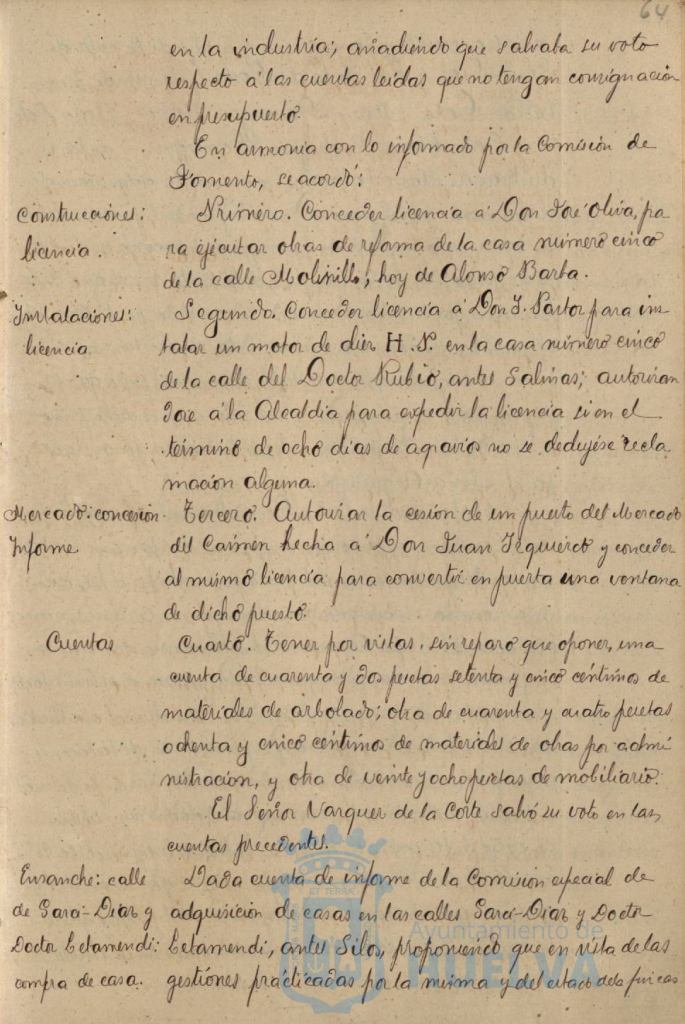 64
en la industria; añadiendo que salvaba su voto
respecto á las cuentas leídas que no tengan consignación
en presupuesto.
En armonía con lo informado por la Comisión de
Fomento, se acordó:
Construcciones:
licencia.
Primero. Conceder licencia á Don José Oliva, pa
ra ejecutar obras de reforma de la casa número cinco
de la calle Molinillo, hoy de Alonso Barba.
Instalaciones:
licencia
Segundo. Conceder licencia á Don J. Pastor para ins
talar un motor de diez H. P. en la casa número cinco
de la calle del Doctor Rubio, antes Salinas; autorizan
dose á la Alcaldía para expedir la licencia si en el
término de ocho días de agravios no se dedujese recla
mación alguna.
Mercado: concesión
Informe
Tercero. Autorizar la cesión de un puesto del Mercado
del Carmen hecha á Don Juan Izquierdo y conceder
al mismo licencia para convertir en puerta una ventana
de dicho puesto.
Cuentas
Cuarto. Tener por vistas, sin reparo que oponer, una
cuenta de cuarenta y dos pesetas setenta y cinco céntimos de
materiales de arbolado; otra de cuarenta y cuatro pesetas
ochenta y cinco céntimos de materiales de obras por admi
nistración, y otra de veinte y ocho pesetas de mobiliario.
El Señor Vazquez de la Corte salvó su voto en las
cuentas precedentes.
Ensanche: calle
de Garci-Diaz y
Doctor Letamendi:
compra de casa.
Dada cuenta de informe de la Comisión especial de
adquisición de casas en las calles Garci-Diaz y Doctor
Letamendi, antes Silos, proponiendo que en vista de las
gestiones practicadas por la misma y del estado de la fincas
Ayuntamiento de
HUELVA